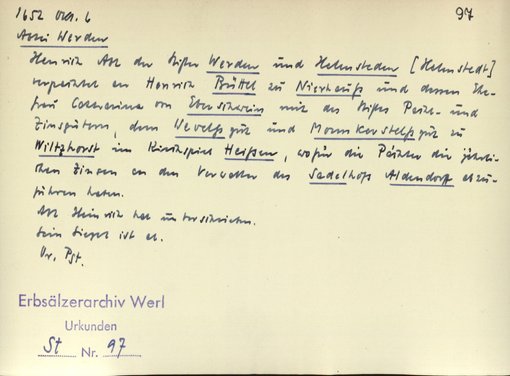 1652 Okt. 6
97
Abtei Werden
Heinrich Abt der Stifter Werden und Helmsteden [Helmstedt]
verpachtet an Henrich Brüttel zu Nierhauß und dessen Ehe-
frau Catharina von Eberschwein mit des Stiftes Pacht- und
Zinsgütern, dem Wevelßgut und Monnkerstelßgut zu
Wiltzhorst im Kirchspiel Heißen, wofür die Pächter die jährli-
chen Zinsen an den Verwalter des Sadelhofs Aldendorff abzu-
führen haben.
Abt Heinrich hat unterschrieben.
Sein Siegel ist ab.
Or. Pgt.
Erbsälzerarchiv Werl
Urkunden
St Nr. 97